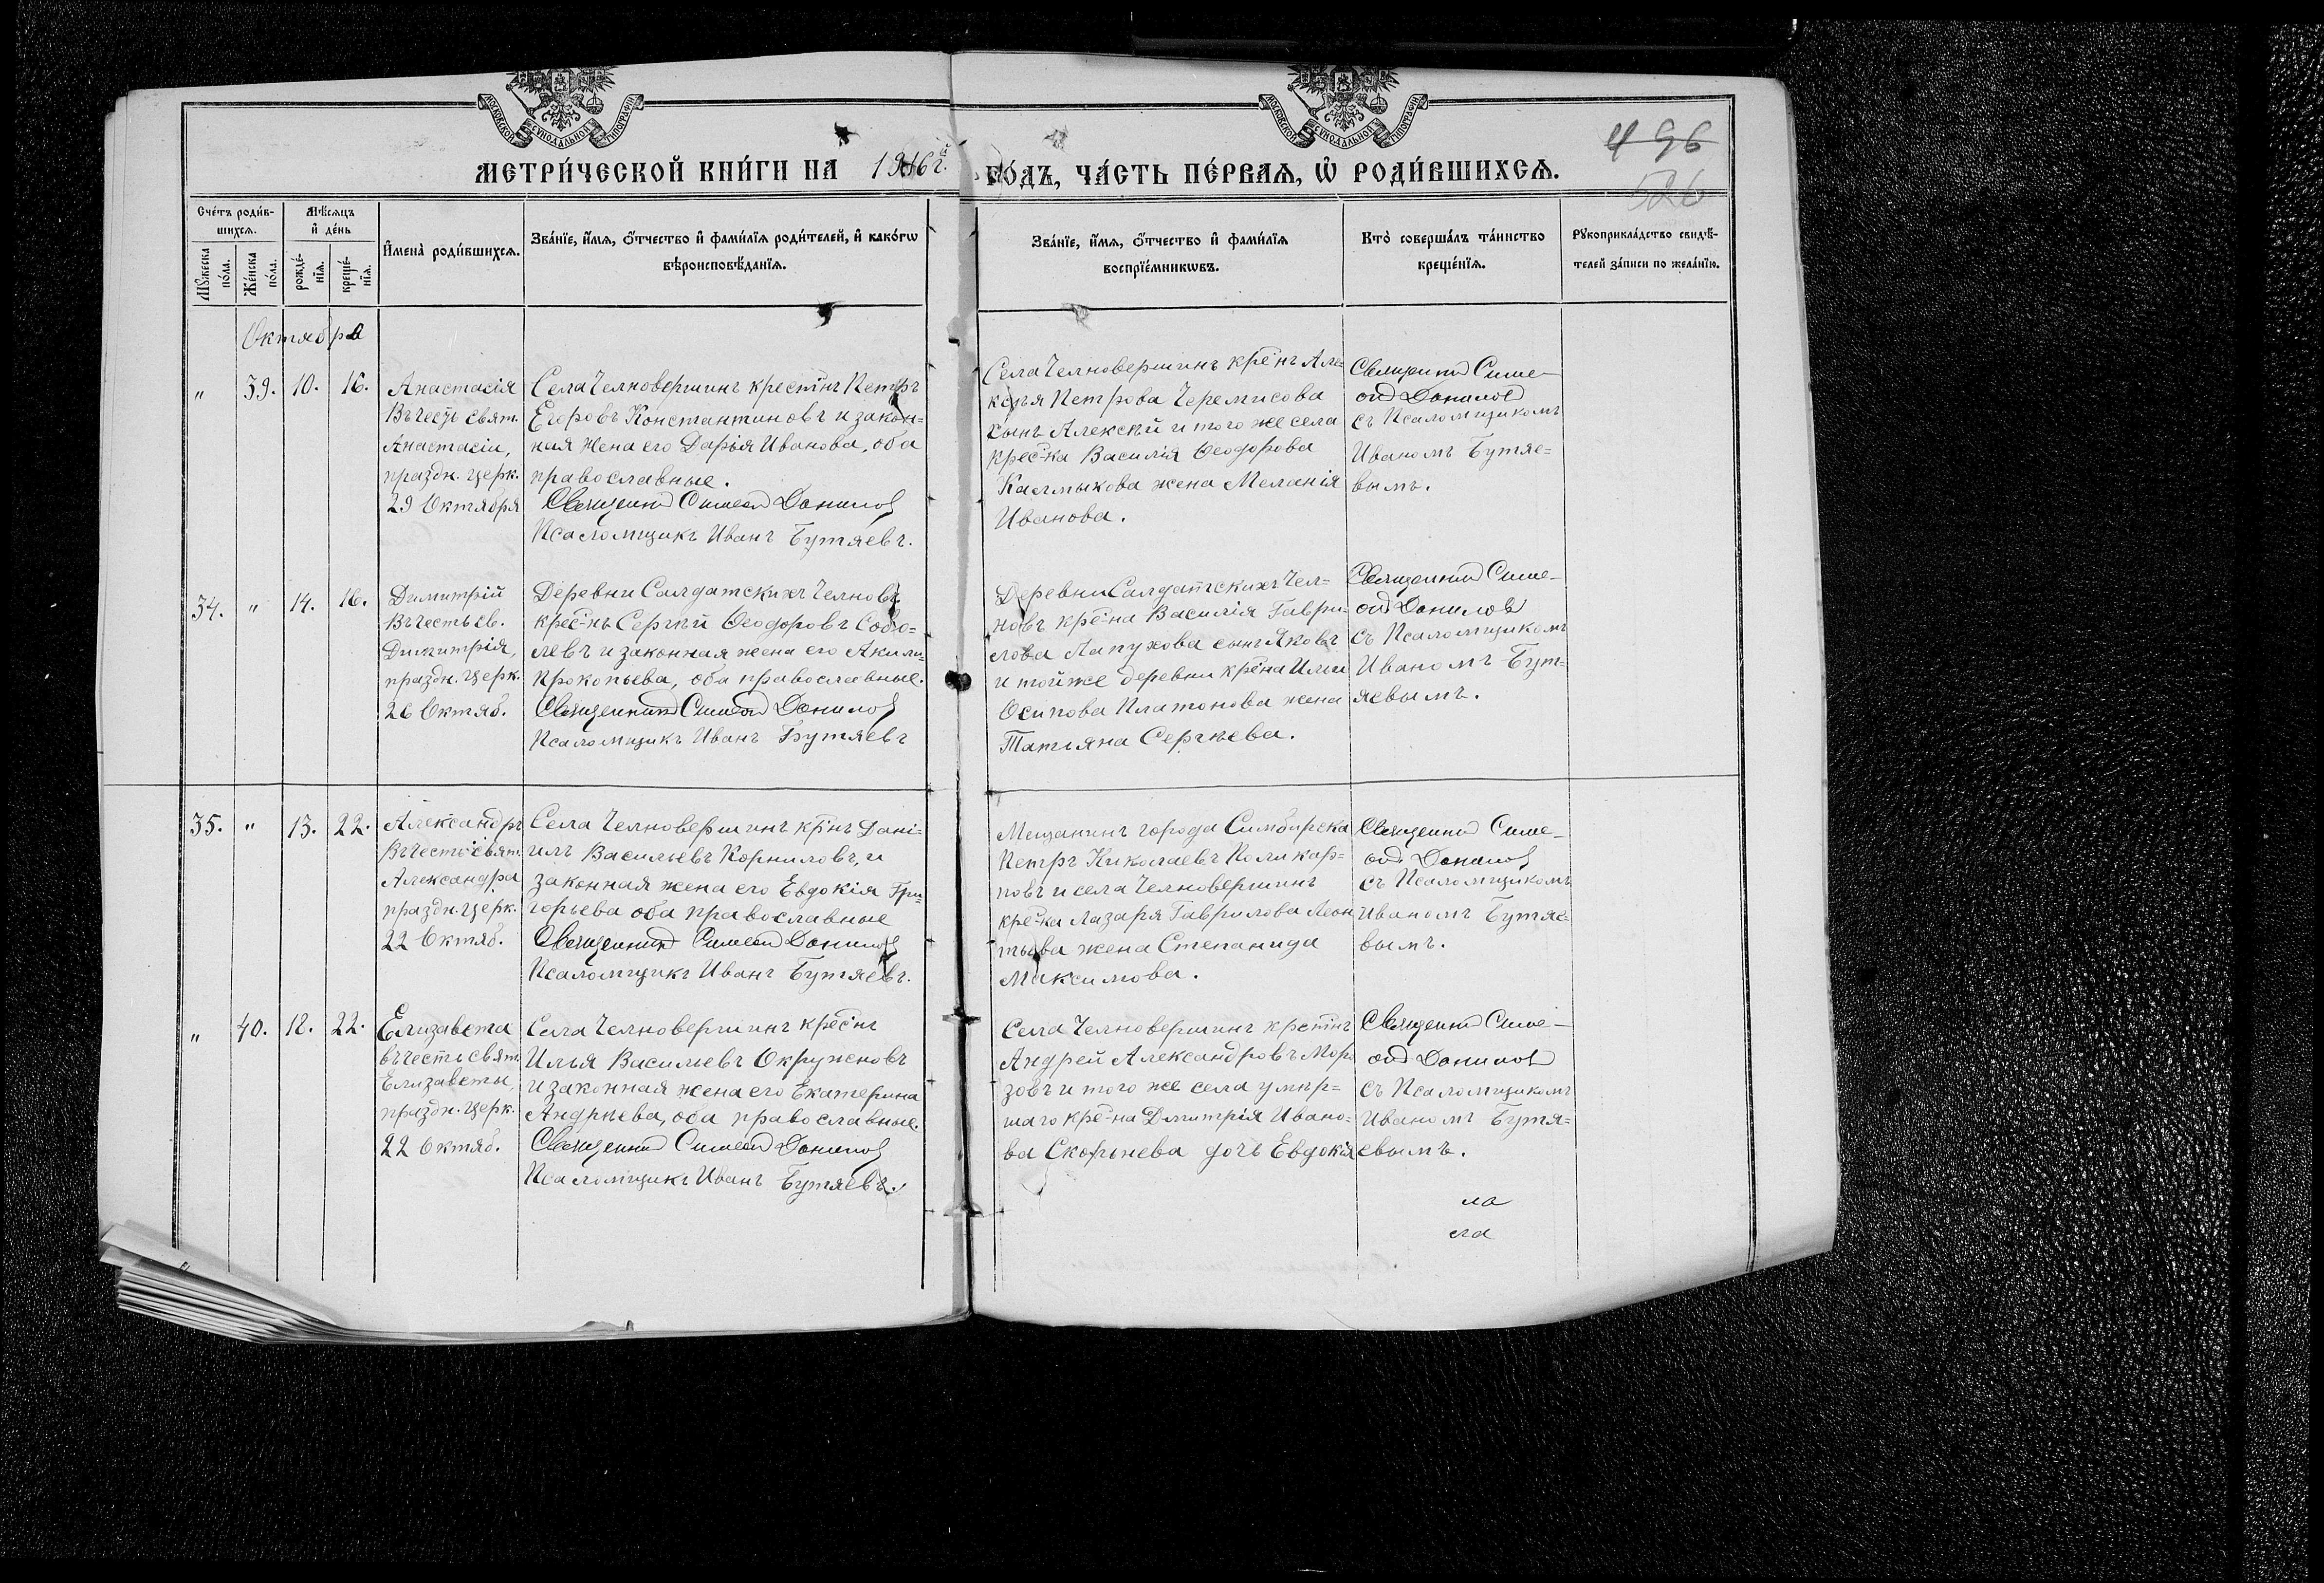 МОСКОВСКОЙ СѴНОДАЛЬНОЙ ТИПОГРАФІИ
МОСКОВСКОЙ СѴНОДАЛЬНОЙ ТИПОГРАФІИ
496
МЕТРИ́ЧЕСКОЙ КНИ́ГИ НА 1916 г. ГО́ДЪ, ЧА́СТЬ ПЕ́РВАѦ, Ѡ҆ РОДИ́ВШИХСѦ.
526
Сче́тъ роди́в-
шихсѧ.
Мѣ́сѧцъ
и҆ де́нь
Мꙋ́жеска по́ла.
Же́нска по́ла.
рожде́-
нїѧ.
креще́-
нїѧ.
И҆мена̀ роди́вшихсѧ.
Зва́нїе, и҆́мѧ, ѻ҆́тчество и҆ фами́лїѧ роди́телей, и҆ како́гѡ
вѣроисповѣ́данїѧ.
Зва́нїе, и҆́мѧ, ѻ҆́тчество и҆ фами́лїѧ
воспрїе́мникѡвъ.
Кто̀ соверша́лъ та́инство
креще́нїѧ.
Рꙋкоприкла́дство свидѣ́-
телей за́писи по жела́нїю.
Октября
" 39. 10. 16.
Анастасія
Въ честь свят.
Анастасіи,
праздн. церк.
29 Октября
Села Челновершинъ крестінъ Петръ
Егоровъ Константиновъ и закон=
ная жена его Дарія Иванова, оба
православные.
Священникъ Симеонъ Даниловъ
Псаломщикъ Иванъ Бутяевъ.
Села Челновершинъ кре-нъ Але-
ксѣя Петрова Черемисова
сынъ Алексѣй и того же села
крес-ка Василія Ѳеодорова
Калмыкова жена Меланія
Иванова.
Священникъ Симе-
онъ Даниловъ
съ Псаломщикомъ
Иваномъ Бутяе=
вымъ.
34. " 14. 16.
Димитрій
Въ честь св.
Димитрія,
праздн. церк.
26 Октяб.
Деревни Салдатскихъ Челновъ
крес-нъ Сергѣй Ѳеодоровъ Собо=
левъ и законная жена его Акили-
Прокопьева, оба православные.
Священникъ Симеонъ Даниловъ
Псаломщикъ Иванъ Бутяевъ
Деревни Салдатскихъ Чел=
новъ кре-на Василія Гаври-
лова Лапухова сынъ Яковъ
и той же деревни кре-на Ильи
Осипова Платонова жена
Татьяна Сергѣева.
Священникъ Симе-
онъ Даниловъ
съ Псаломщикомъ
Иваномъ Бут=
яевымъ.
35. " 13. 22.
Александръ
Въ честь свят.
Александра
праздн. церк.
22 Октяб.
Села Челновершинъ кр-нъ Дані=
илъ Васильевъ Корниловъ, и
законная жена его Евдокія Гри-
горьева оба православные
Священникъ Симеонъ Даниловъ
Псаломщикъ Иванъ Бутяевъ.
Мещанинъ города Симбирска
Петръ Николаевъ Поликар=
повъ и села Челновершинъ
кре-ка Лазаря Гаврилова Леон
тьева жена Степанида
Максимова.
Священникъ Симе-
онъ Даниловъ
съ Псаломщикомъ
Иваномъ Бутяе-
вымъ.
" 40. 12. 22.
Елизавета
въ честь свят.
Елизаветы,
праздн. церк.
22 Октяб.
Села Челновершинъ крес-нъ
Илья Васильевъ Окружновъ
и законная жена его Екатерина
Андрѣева, оба православные.
Священникъ Симеонъ Даниловъ
Псаломщикъ Иванъ Бутяевъ.
Села Челновершинъ крестінъ
Андрей Александровъ Моро
зовъ и того же села умер=
шаго кре-на Дмитрія Ивано=
ва Скорнева дочь Евдокія
Священникъ Симе-
онъ Даниловъ
съ Псаломщикомъ
Иваномъ Бутя=
евымъ.
ла
ла